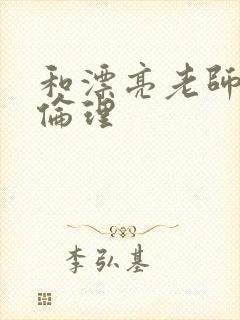 和漂亮老師
倫理
李弘基